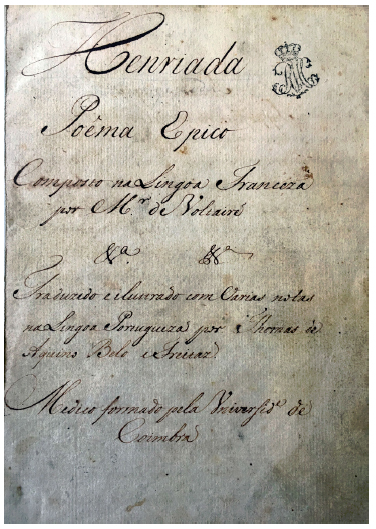 Henriada
Poêma Epico
Composto na Lingoa Franceza
por M.r de Voltaire
&.a &.a
Traduzido e ilustrado com Varias notas
na Lingoa Portugueza por Thomas de
Aquino Belo e Freitas
Medico formado pela Universid.e de
Coimbra